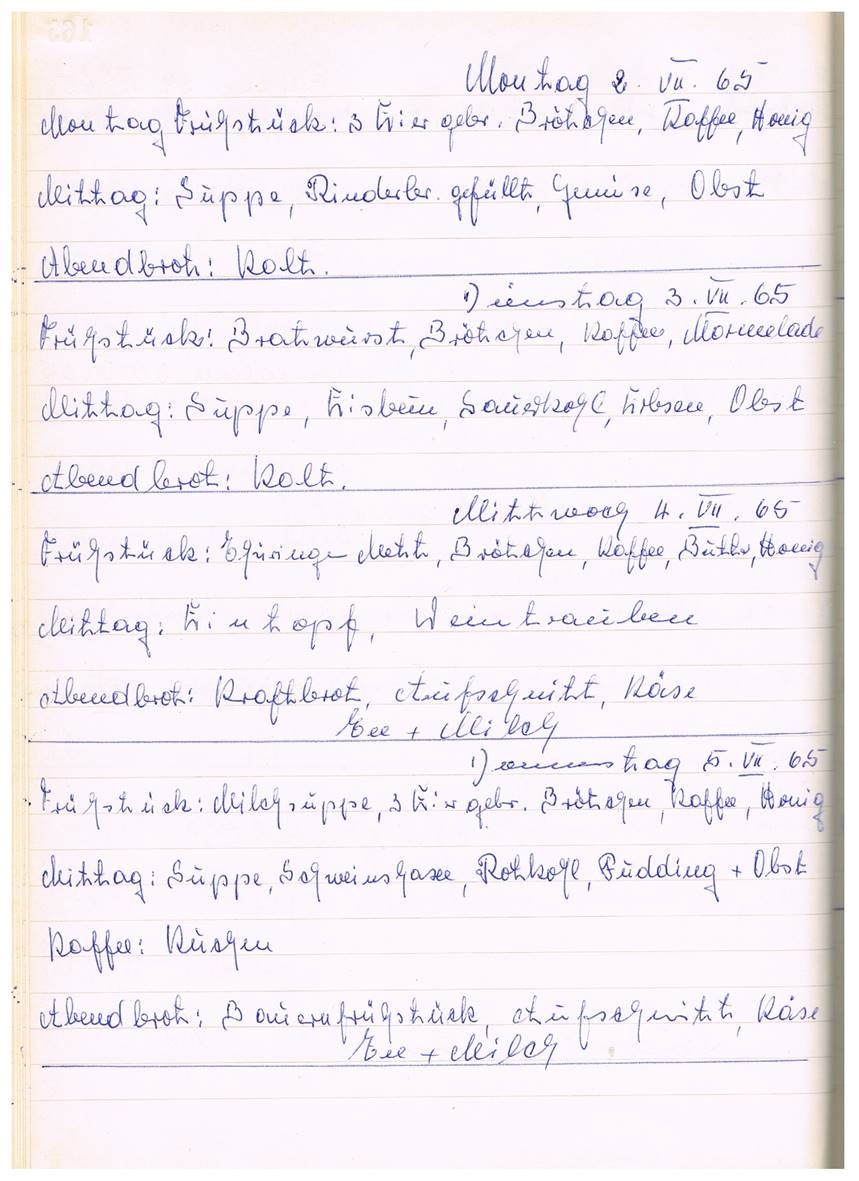 Montag 2. VII. 65
Montag Frühstück: 3 Eier gebr. Brötchen, Kaffee, Honig
Mittag: Suppe, Rinderbr. gefüllt, Gemüse, Obst
Abendbrot: Kalt.
Dienstag 3. VII. 65
Frühstück: Bratwurst, Brötchen, Kaffee, Marmelade
Mittag: Suppe, Eisbein, Sauerkohl, Erbsen, Obst
Abendbrot: Kalt.
Mittwoch 4. VII. 65
Frühstück: Thüringe Mett, Brötchen, Kaffee, Butter, Honig
Mittag: Eintopf, Weintrauben
Abendbrot: Kraftbrot, Aufschnitt, Käse
Tee + Milch
Donnerstag 5. VII. 65
Frühstück: Milchsuppe, 3 Eier gebr. Brötchen, Kaffee, Honig
Mittag: Suppe, Schweinshaxe, Rotkohl, Pudding + Obst
Kaffee: Kuchen
Abendbrot: Bauernfrühstück, Aufschnitt, Käse
Tee + Milch